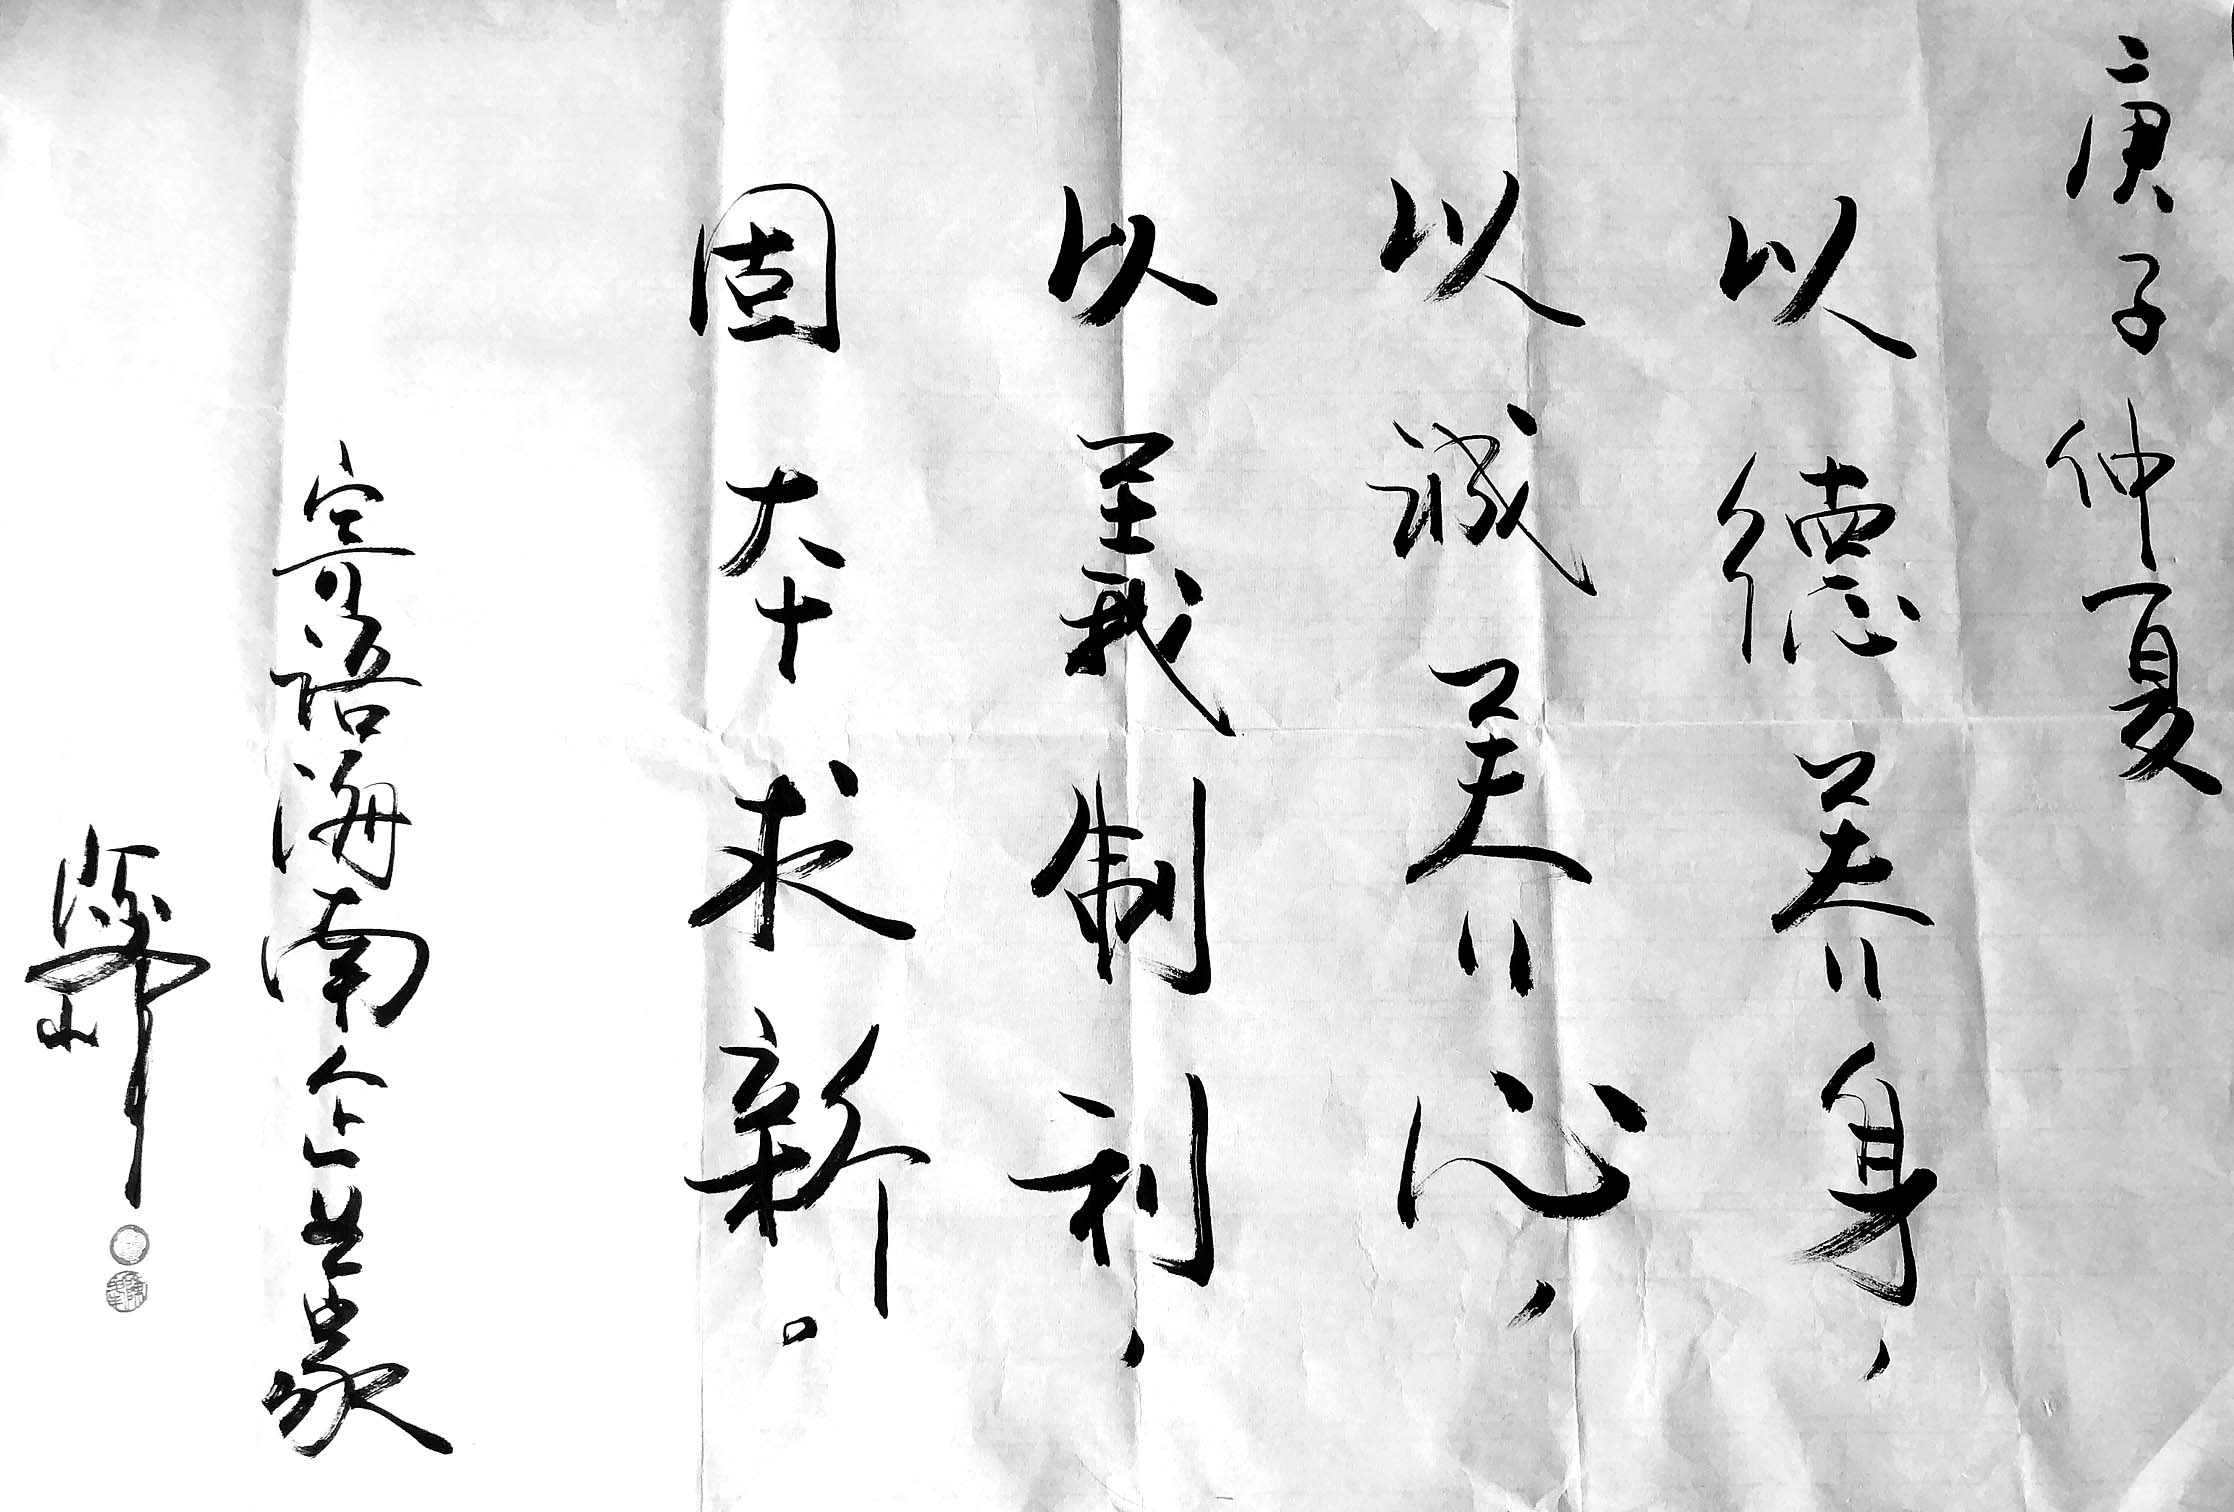 庚子仲夏
以德养身，
以诚养心，
以義制利，
固本求新。
寄语海南企业家